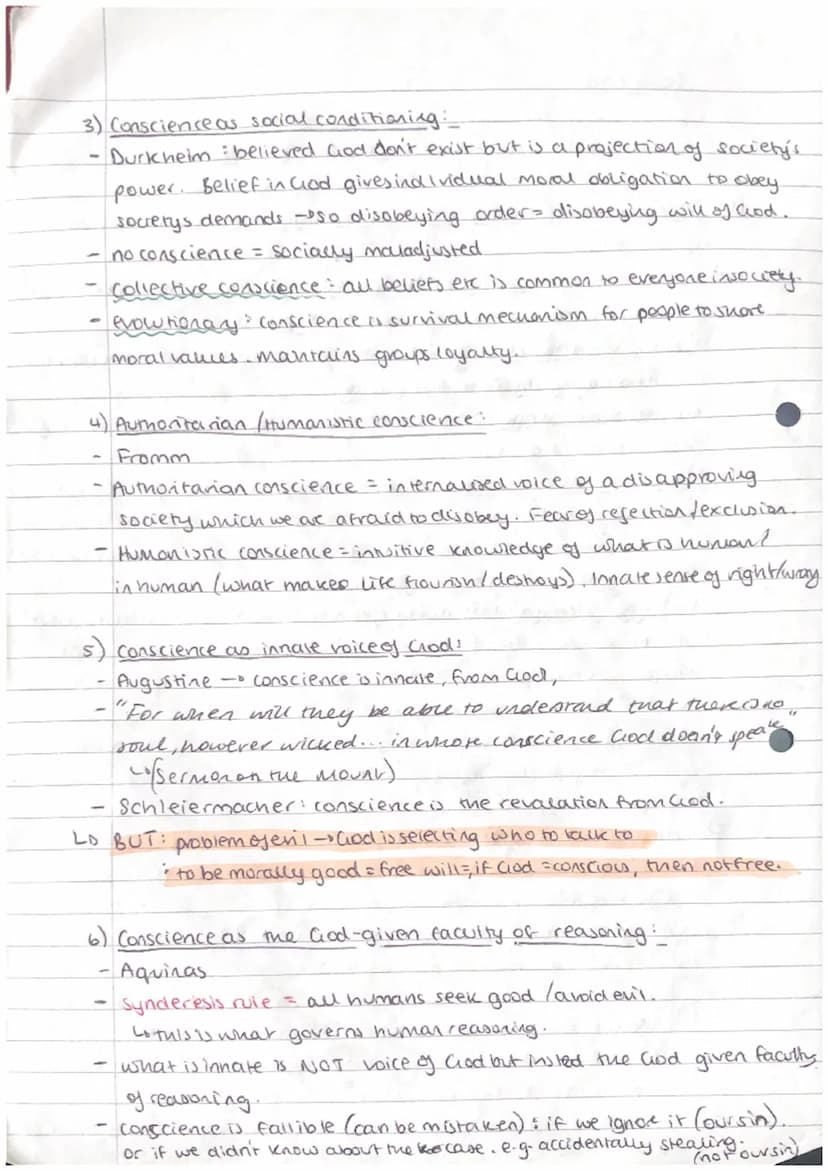 3) Conscience as social conditioning:
- Durkheim: believed God don't exist but is a projection of society's
power. Belief in God gives individual moral obligation to obey
societys demands → so disobeying order = disobeying will of God.
- no conscience = socially maladjusted
- collective conscience: all beliefs etc is common to everyone in society.
- evolutionary: conscience is survival mechanism for people to share
moral values. maintains groups loyalty.
4) Authoritarian / Humanistic conscience:
- Fromm
- Authoritarian conscience = internalised voice of a disapproving
society which we are afraid to disobey. Fear of rejection/exclusion.
- Humanistic conscience = intuitive knowledge of what is human/
inhuman (what makes life flourish/destroys). Innate sense of right/wrong
5) Conscience as innate voice of God:
- Augustine → conscience is innate, from God,
- "For when will they be able to understand that there is no
soul, however wicked... in whose conscience God doesn't speak"
↳ (Sermon on the Mount)
- Schleiermacher: conscience is the revalation from God.
↳ BUT: problem of evil → God is selecting who to talk to
: to be morally good = free will =, if God = conscious, then not free.
6) Conscience as the God-given faculty of reasoning:
- Aquinas
- synderesis rule = all humans seek good / avoid evil.
↳ this is what governs human reasoning.
- what is innate is NOT voice of God but insted the God given faculty
of reasoning.
- conscience is fallible (can be mistaken): if we ignore it (our sin).
or if we didn't know about the case. e.g. accidentally stealing.
(not our sin)